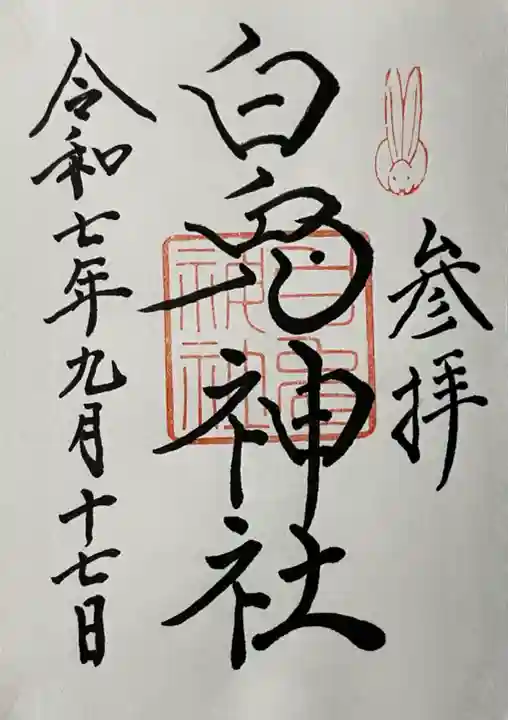 参拝
白兎神社
白兎
神社
令和七年九月十七日